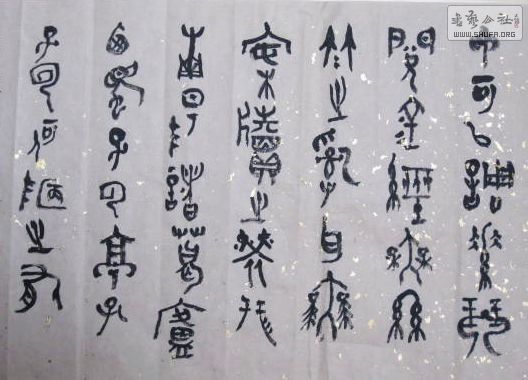 丁可以調素琴
閱金經無絲
竹之亂耳無
案牘之勞形
南陽諸葛廬
西蜀子云亭孔
子云何陋之有
书艺公社
WWW.SHUFA.ORG